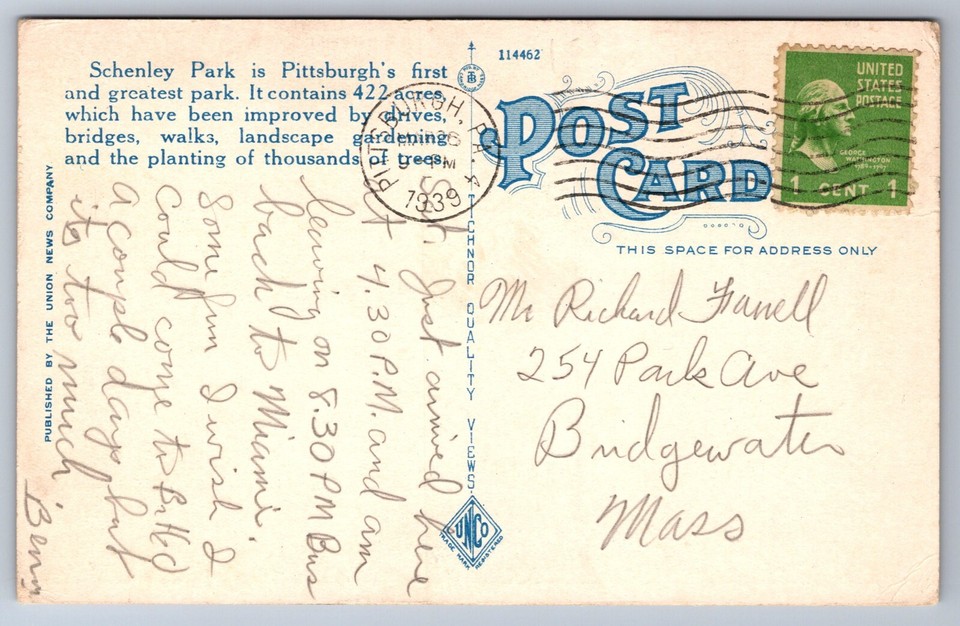 Schenley Park is Pittsburgh's first
and greatest park. It contains 422 acres,
which have been improved by drives,
bridges, walks, landscape gardening
and the planting of thousands of trees.
PUBLISHED BY THE UNION NEWS COMPANY
114462
POST
CARD
THIS SPACE FOR ADDRESS ONLY
PITTSBURGH, PA.
9 PM
1939
UNITED
STATES
POSTAGE
GEORGE
WASHINGTON
1789-1797
1 CENT 1
TICHNOR QUALITY VIEWS.
UNCO
TRADE MARK REGISTERED
Just arrived here
at 4.30 P.M. and am
leaving on 8.30 PM Bus
back to Miami.
Some fun I wish I
could come to
a couple days but
its too much
Mr Richard Farrell
254 Park Ave
Bridgewater
Mass